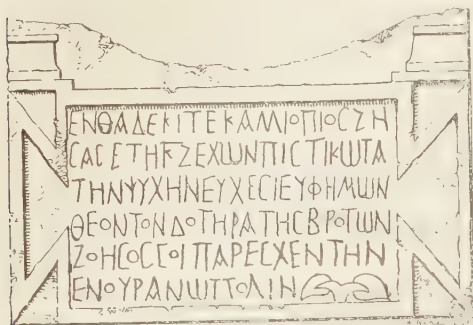 ΕΝΘΑΔΕΚΙΤΕΚΑΛΛΙΟΠΙΟϹΖΗ
ϹΑϹΕΤΗΚΖΕΧΩΝΠΙϹΤΙΚΩΤΑ
ΤΗΝΨΥΧΗΝΕΥΧΕϹΙΕΥΦΗΜΩΝ
ΘΕΟΝΤΟΝΔΟΤΗΡΑΤΗϹΒΡΟΤΩΝ
ΖΟΗϹΟϹϹΟΙΠΑΡΕϹΧΕΝΤΗΝ
ΕΝΟΥΡΑΝΩΠΟΛΙΝ